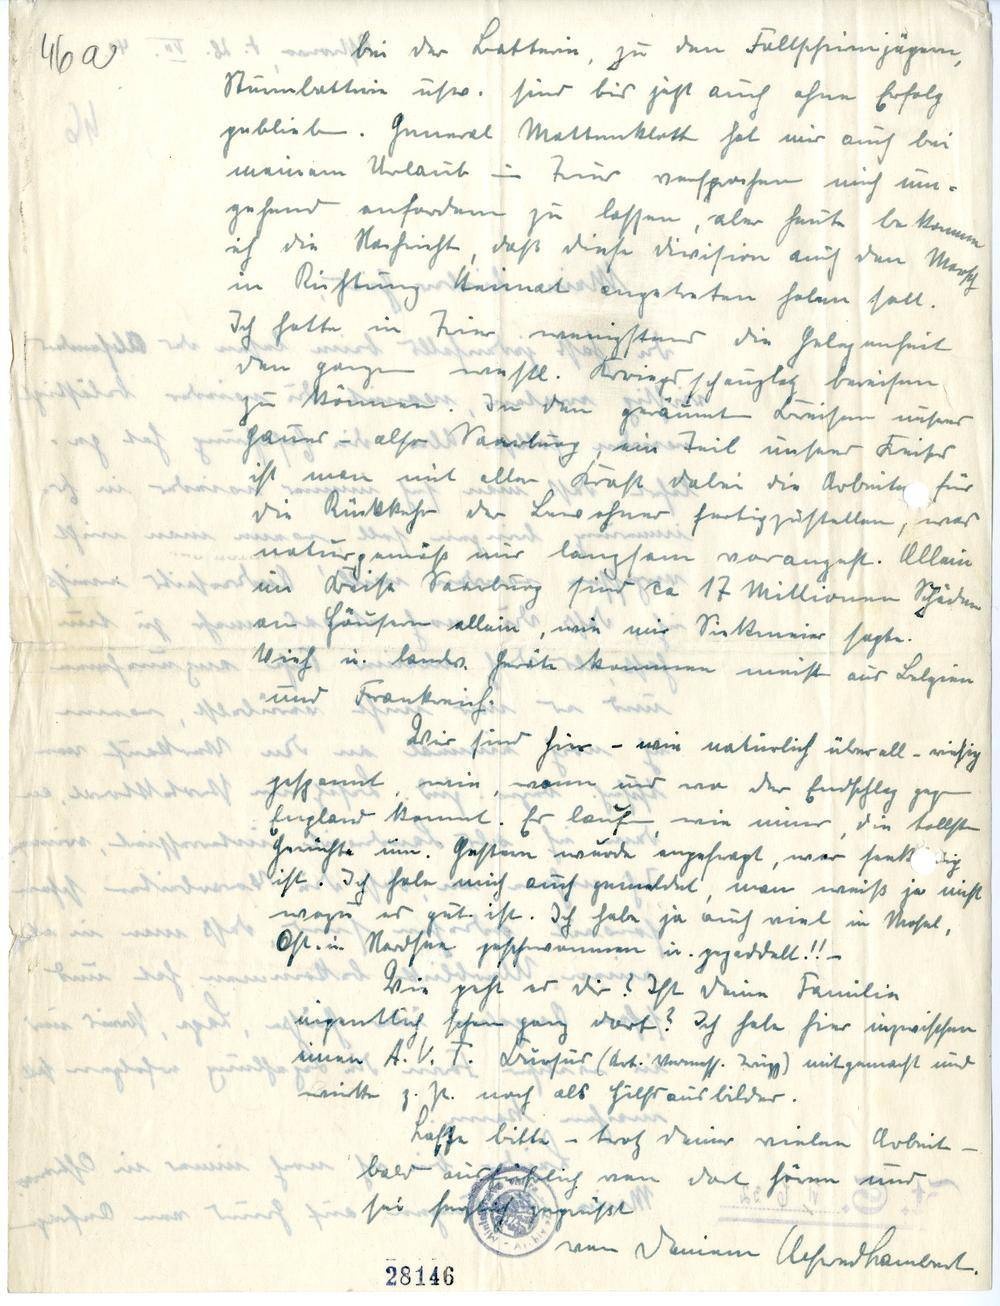 46a
bei der Batterie, zu den Fallschirmjägern,
Sturmbatterie usw. sind bis jetzt auch ohne Erfolg
geblieben. General Mattenklott hat mir auch bei
meinem Urlaub in Trier versprochen mich um-
gehend anfordern zu lassen, aber heute bekomme
ich die Nachricht, daß diese Division auch den Marsch
in Richtung Heimat angetreten haben soll.
Ich hatte in Trier wenigstens die Gelegenheit
den ganzen westl. Kriegsschauplatz bereisen
zu können. In den geräumten Kreisen unseres
Gaues – also Saarburg, ein Teil unseres Kreises
ist man mit aller Kraft dabei die Arbeiten für
die Rückkehr der Bewohner fertigzustellen, was
naturgemäß nur langsam vorangeht. Allein
im Kreise Saarburg sind ca 17 Millionen Schäden
an Häusern allein, wie mir Siekmeier sagte.
Vieh u. landw. Geräte kommen meist aus Belgien
und Frankreich.
Wir sind hier – wie natürlich überall – riesig
gespannt, wie, wann und wo der Endschlag gegen
England kommt. Es laufen, wie immer, die tollsten
Gerüchte um. Gestern wurde angefragt, wer seekundig
ist. Ich habe mich auch gemeldet, man weiß ja nicht
wozu es gut ist. Ich habe ja auch viel in Mosel,
Ost- u. Nordsee geschwommen u. gepaddelt!! –
Wie geht es dir? Ist deine Familie
eigentlich schon ganz dort? Ich habe hier inzwischen
einen A.V.T. Kursus (Art. Vermess. Trupp) mitgemacht und
wirke z. Zt. noch als Hilfsausbilder.
Lasse bitte – trotz deiner vielen Arbeit –
bald ausführlich von dort hören und
sei herzlich gegrüßt
von Deinem Alfred Lambert.
28146